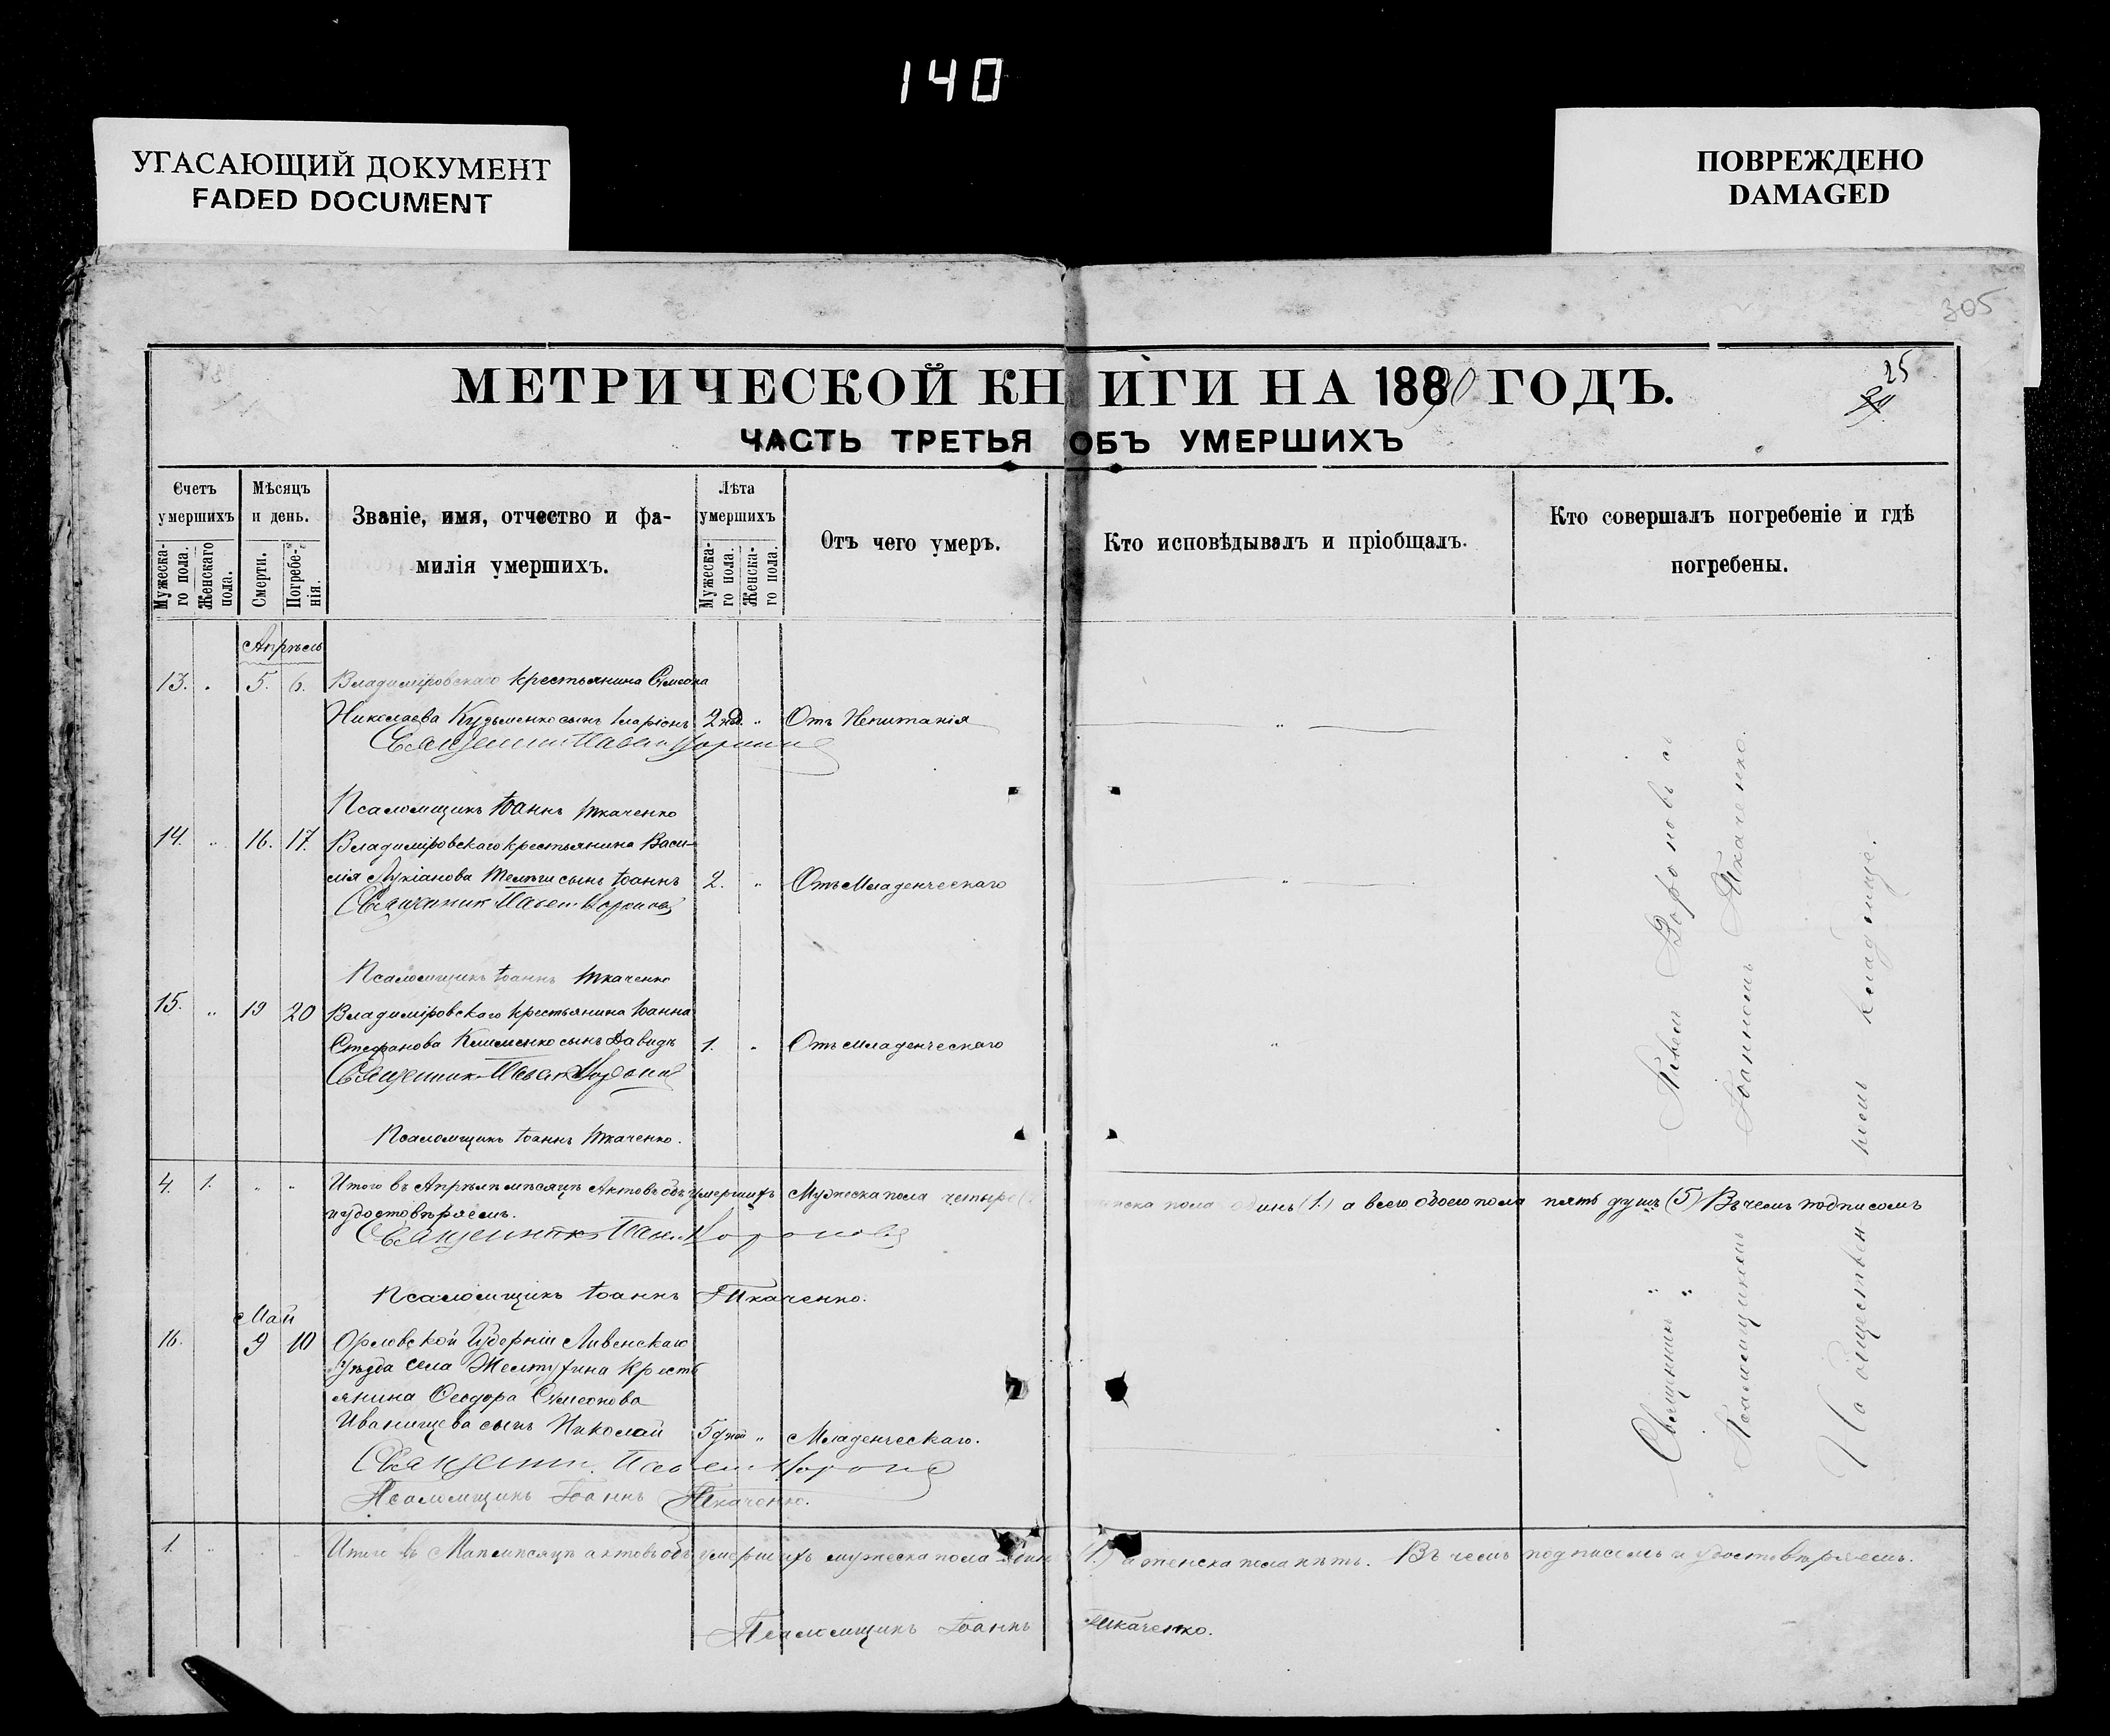 140
УГАСАЮЩИЙ ДОКУМЕНТ
FADED DOCUMENT
ПОВРЕЖДЕНО
DAMAGED
305
МЕТРИЧЕСКОЙ КНИГИ НА 1890 ГОДЪ.
25
ЧАСТЬ ТРЕТЬЯ ОБЪ УМЕРШИХЪ
Счетъ умершихъ
Мужеска-го пола.
Женскаго пола.
Мѣсяцъ и день.
Смерти.
Погребе-нія.
Званіе, имя, отчество и фа-
милія умершихъ.
Лѣта умершихъ
Мужеска-го пола.
Женска-го пола.
Отъ чего умеръ.
Кто исповѣдывалъ и пріобщалъ.
Кто совершалъ погребеніе и гдѣ
погребены.
Апрѣль
13. " 5. 6. Владиміровскаго крестьянина Симеона
Николаева Кузьменко сынъ Иларіонъ 2 нед. " Отъ Непитанія "
Священникъ Павелъ Вороновъ
Псаломщикъ Іоаннъ Ткаченко
14. " 16. 17. Владиміровскаго крестьянина Васи-
лія Лукіанова Телѣги сынъ Іоаннъ 2. " Отъ Младенческаго "
Священникъ Павелъ Вороновъ
Псаломщикъ Іоаннъ Ткаченко
15. " 19 20 Владиміровскаго крестьянина Іоанна
Стефанова Клименко сынъ Давидъ 1. " Отъ Младенческаго "
Священникъ Павелъ Вороновъ
Псаломщикъ Іоаннъ Ткаченко.
4. 1. " " Итого въ Апрѣлѣ мѣсяцѣ Актовъ объ умершихъ Мужеска пола четыре женска пола одинъ (1.) а всего обоего пола пять душъ (5) Въ чемъ подписомъ
и удостовѣряемъ.
Священникъ Павелъ Вороновъ
Псаломщикъ Іоаннъ Ткаченко.
Май
16. 9 10 Орловской Губерніи Ливенскаго
Уѣзда села Желтухина Кресть
янина Ѳеодора Симеонова
Иванищева сынъ Николай 5 дней " Младенческаго.
Священникъ Павелъ Вороновъ
Псаломщикъ Іоаннъ Ткаченко.
Священникъ Павелъ Вороновъ съ
Псаломщикомъ Іоанномъ Ткаченко.
На общественномъ кладбищѣ.
1. " Итого въ Маѣ мѣсяцѣ актовъ объ умершихъ мужеска пола одинъ (1.) а женска пола нѣтъ. Въ чемъ подписомъ и удостовѣряемъ.
Псаломщикъ Іоаннъ Ткаченко.